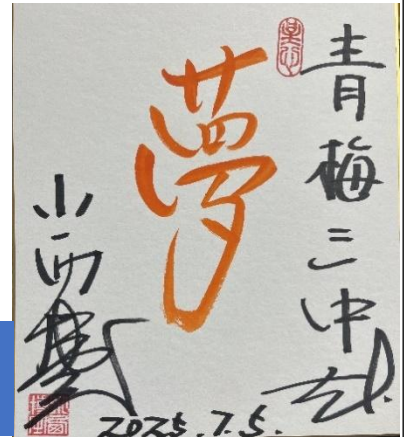 青梅三中
夢
小西
2025.7.5.